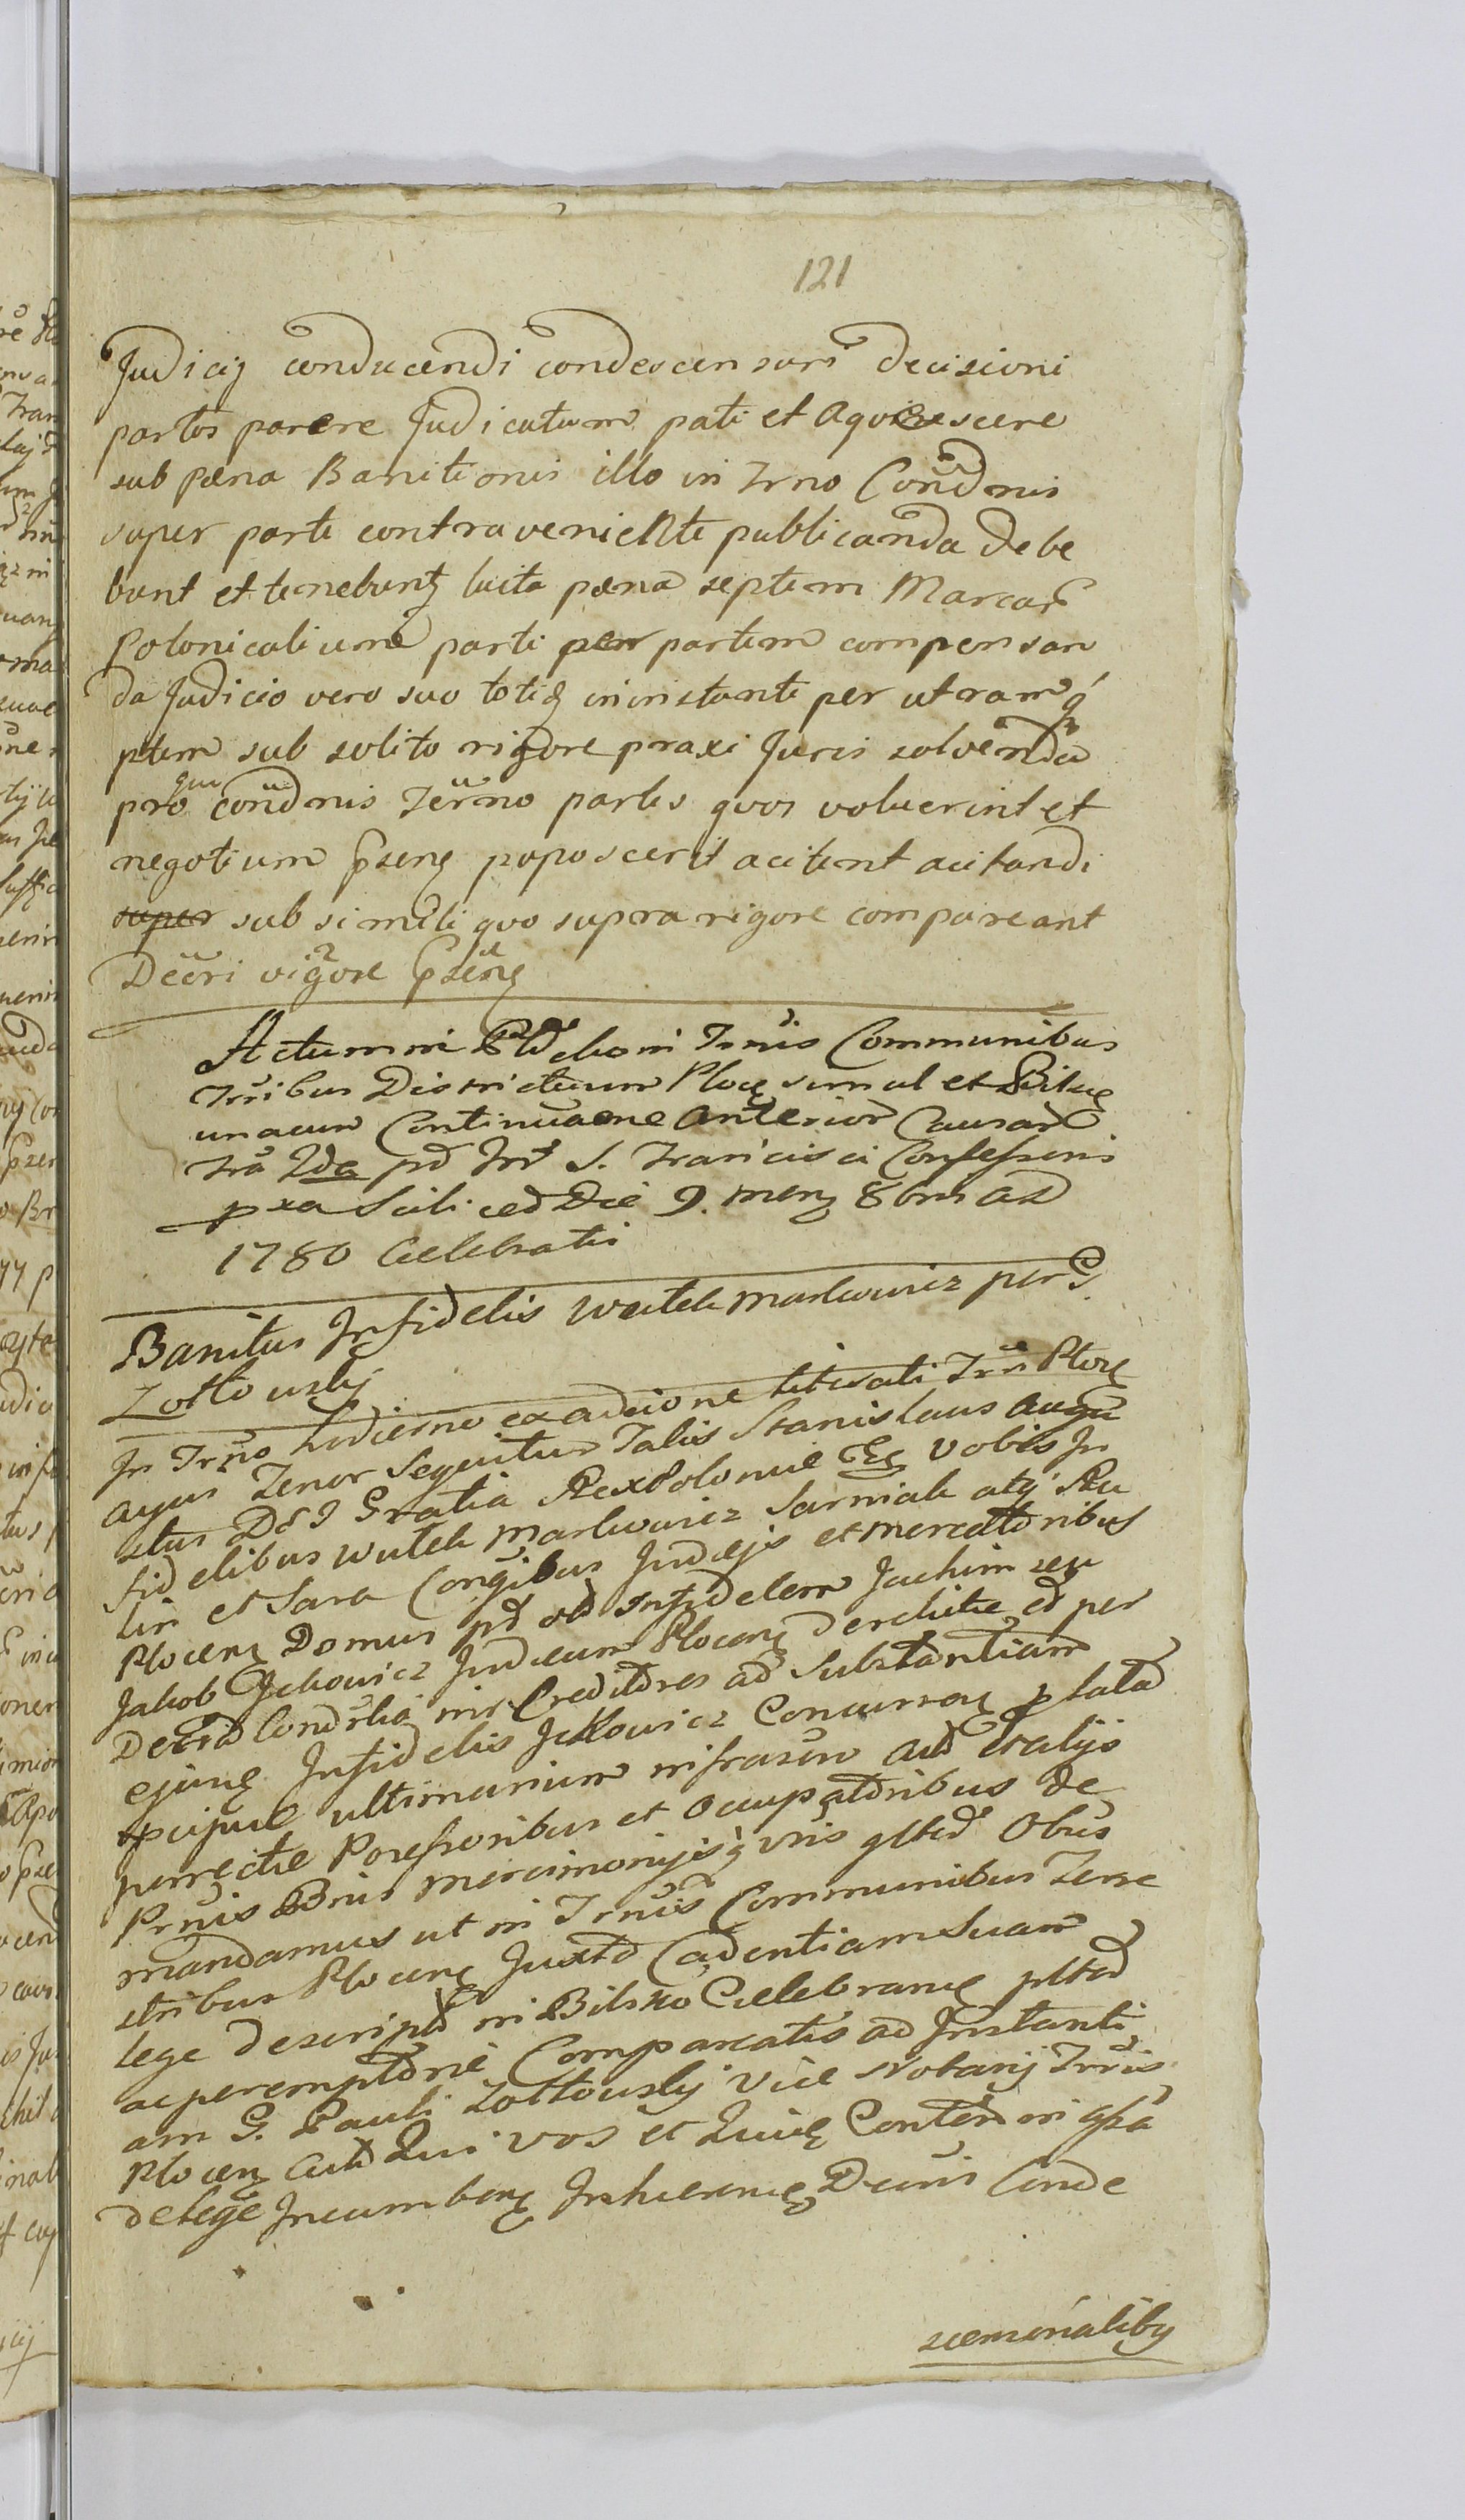 121
Judicij conducendi condescensori decisioni
partes parere Judicatum pati et aquiescere
sub pæna Banitionis illo in Trno Condnis
super parte contraveniente publicanda debe
bunt et tenebunt luita pæna septem Marcar
Polonicalium parti per partem compensan
da Judicio vero suo totiq in instanti per utramq
ptem sub solito rigore praxi Juris solvenda
pro quo condnis Termno partes quos voluerint et
negotium pseng poposcerit acitent acitandi
super sub simili quo supra rigore compareant
Decri vigore pseng
Actum in Bilsko in Trnis Communibus
Trribus Districtuum Plocg simul et Bilscg
unacum Continuaone Anterior Causar
fria 2da pd fst S. Francisci Confessoris
pxa Scilicet Die 9. meng 8bris AD
1780 Celebratis
Banitus Infidelis Wulek Markwicz per G.
Zołtowski
In Trno hodierno ex adcione literali Trris Plocg
cujus Tenor Sequitur Talis Stanislaus Augu
stus D G Gratia Rex Poloniæ Eg Vobis In
fidelibus Wulek Markwicz Sarniak atq Ru
lin et Sara Congibus Judæjs et mercatoribus
Ploceng Domus pd ad Infidelem Jachim seu
Jakob Jckowicz Judæum Ploceng derelictæ et per
Decrta Condrlia inr Creditores ad Substantiam
ejusdg Infidelis Jckowicz Concurrong plata
ultimarium infrascr
perrectæ Possessoribus et Occupatoribus de
Prnis Bnis mercimonijsq vris gltr Obus
mandamus ut in Trnis Communibus Terre
stribus Ploceng Juxta Cadentiam Suam
lege descripta in Bilsko Celebrang pltr
ac peremptorie Compareatis ad Instanti
am G. Pauli Zołtowski Vice Notarij Trris
Ploceng Act Qui Vos et Contd in
de lege Incumbeng Inhæreng Decris Conde
scensorialibg